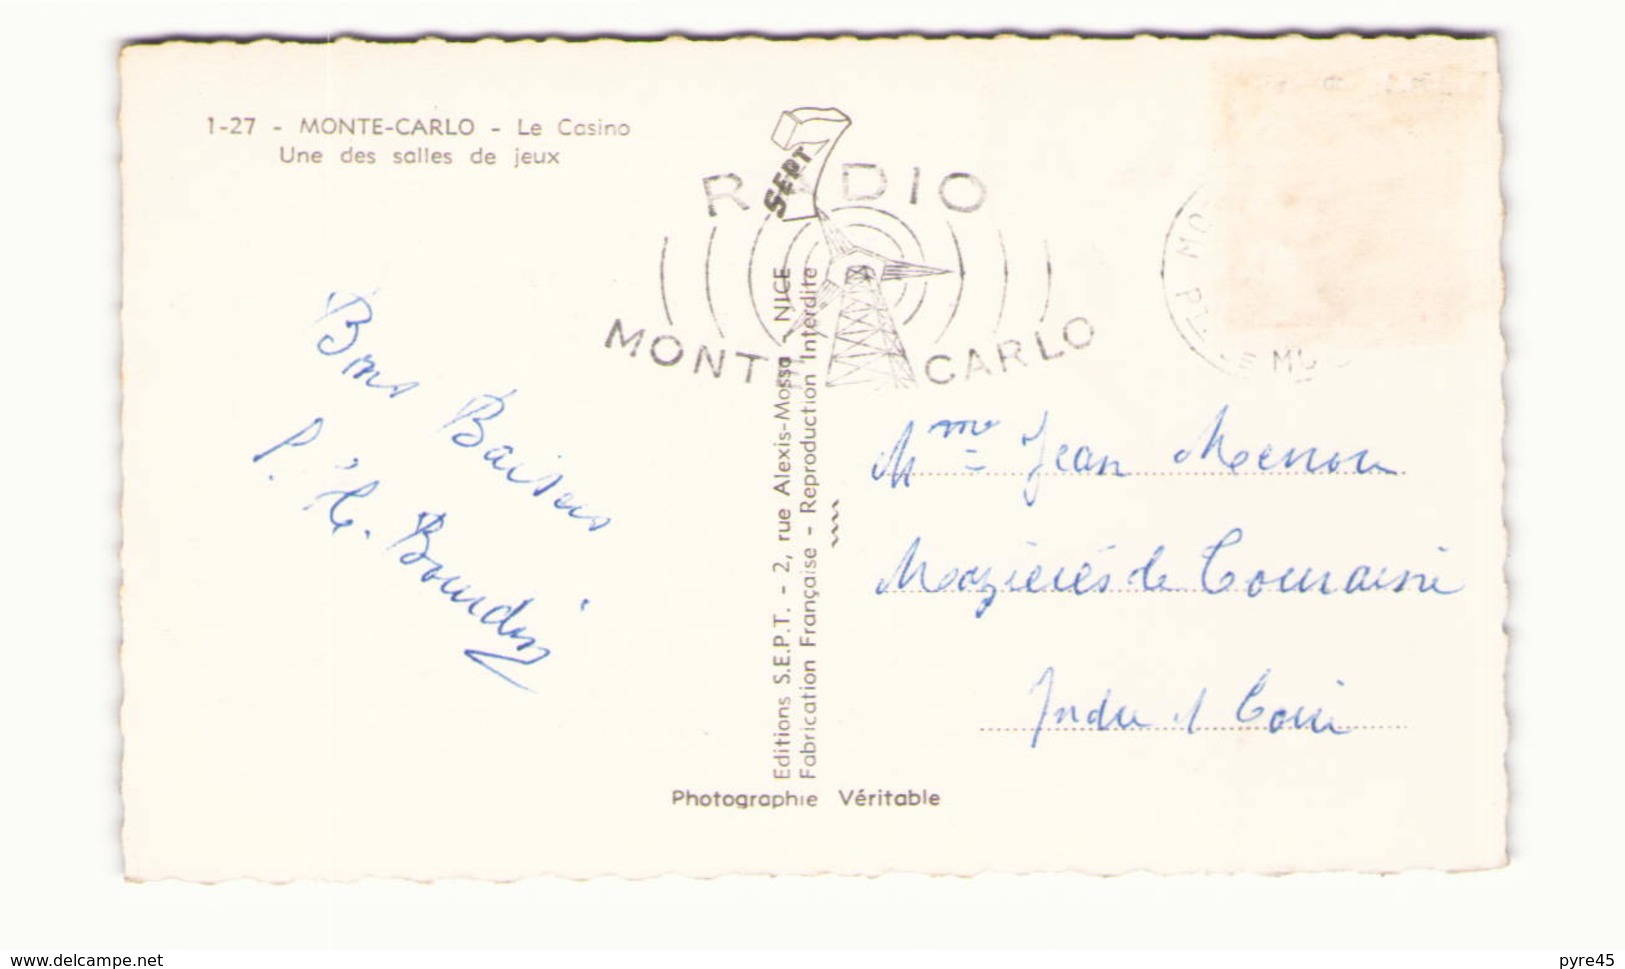 1-27 - MONTE-CARLO - Le Casino
Une des salles de jeux
SEPT
RADIO
MONTE CARLO
Bons Baisers
P. H. Bourdin
Editions S.E.P.T. - 2, rue Alexis-Mossa - NICE
Fabrication Française - Reproduction Interdite
Photographie Véritable
Mme Jean
Mazières de Touraine
Indre & Loire
www.delcampe.net
pyre45